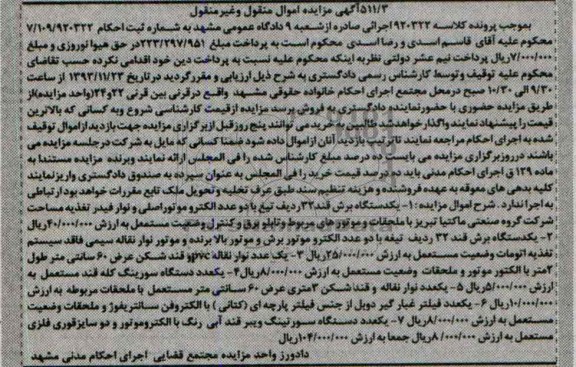 ۵۱۱/۳آگهی مزایده اموال منقول وغیرمنقول
بموجب پرونده کلاسه ۹۲۰۳۲۲اجرائی صادره ازشعبه ۹ دادگاه عمومی مشهد به شماره ثبت احکام ۷/۱۰۹/۹۲۰۳۲۲
محکوم علیه آقای قاسم اسدی و رضا اسدی محکوم است به پرداخت مبلغ ۲۲۳/۲۹۷/۹۵۱ در حق هیوا نوروزی و مبلغ
۷/۰۰۰/۰۰۰ریال پرداخت نیم عشر دولتی نظر به اینکه محکوم علیه نسبت به پرداخت دین خود اقدامی نکرده حسب تقاضای
محکوم علیه توقیف وتوسط کارشناس رسمی دادگستری به شرح ذیل ارزیابی و مقرر گردید در تاریخ ۱۳۹۳/۱۱/۲۳ از ساعت
۹/۳۰ الی ۱۰/۳۰ صبح درمحل مجتمع اجرای احکام خانواده حقوقی مشهد واقع درقرنی بین قرنی ۲۲و۲۴(واحد مزایده)از
طریق مزایده حضوری با حضورنماینده دادگستری به فروش برسد مزایده ازقیمت کارشناسی شروع وبه کسانی که بالاترین
قیمت را پیشنهاد نمایند واگذار خواهدشد طالبین خرید می توانند پنج روز قبل از برگزاری مزایده جهت بازدید ازاموال توقیف
شده به اجرای احکام مراجعه نمایند تا ترتیب بازدید آنان از اموال داده شود ضمنا کسانی که مایل به شرکت در جلسه مزایده می
باشند درروز برگزاری مزایده می بایست ده درصد مبلغ کارشناس شده را فی المجلس ارائه نمایند وبرنده مزایده مستندا به
ماده ۱۲۹ ق اجرای احکام مدنی باید ده درصد قیمت خرید را فی المجلس به عنوان سپرده به صندوق دادگستری واریز نمایند
کلیه بدهی های معوقه به عهده فروشنده و هزینه تنظیم سند طبق عرف تخلیه و تحویل ملک تابع مقررات خواهد بود ارتباطی
به اجرا ندارد. شرح اموال مزایده : ۱- یکدستگاه برش قند ۳۲ردیف تیغ با دو عدد الکترو موتور اصلی و نوار فیدر تغذیه مساحت
شرکت گروه صنعتی ماکنیا تبریز با ملحقات و موتور های مربوط و تابلو برق و کنترل وضعیت مستعمل به ارزش ۴۰/۰۰۰/۰۰۰ریال
۲- یکدستگاه برش قند ۳۲ ردیف تیغه با دو عدد الکترو موتور برش و موتور بالا برنده و موتور نوار نقاله سیمی فاقد سیستم
تغذیه اتومات وضعیت مستعمل به ارزش ۲۵/۰۰۰/۰۰۰ریال ۳- یک عدد نوار نقاله pvcو قند شکن عرض ۶۰ سانتی متر طول
۲متر با الکتور موتور و ملحقات وضعیت مستعمل به ارزش ۸/۰۰۰/۰۰۰ریال ۴- یکعدد دستگاه سورینگ کله قند مستعمل به
ارزش ۵/۰۰۰/۰۰۰ریال ۵- یکعدد نوار نقاله و قندشکن ۳متری عرض ۶۰ سانتی متر مستعمل با ملحقات مربوطه به ارزش
۱۰/۰۰۰/۰۰۰ریال ۶- یکعدد فیلتر غبار گیر دوبل از جنس فیلتر پارچه ای (کتانی ) با الکتروفن سانتریفوژ و ملحقات وضعیت
مستعمل به ارزش ۸/۰۰۰/۰۰۰ریال ۷- یکعدد دستگاه سورتینگ ویبر قند آبی رنگ با الکتروموتور و دو سایز قوری فلزی
مستعمل به ارزش ۸/۰۰۰/۰۰۰ریال جمعا به ارزش ۱۰۴/۰۰۰/۰۰۰ریال
دادورز واحد مزایده مجتمع قضایی اجرای احکام مدنی مشهد